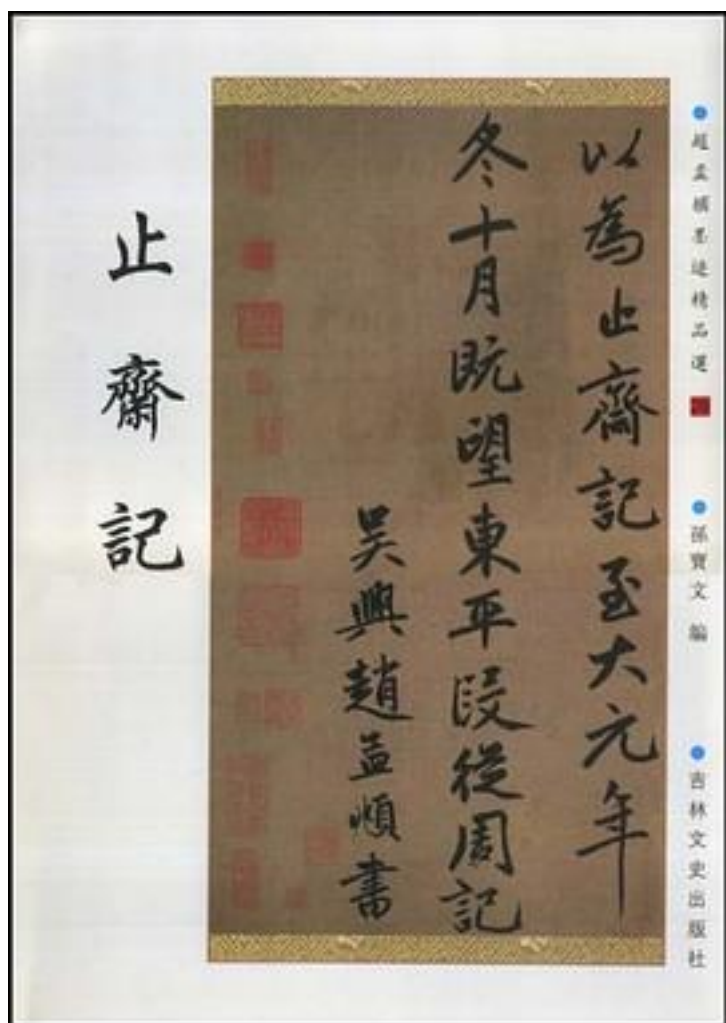 趙孟頫墨迹精品選
孫寶文 編
吉林文史出版社
以為止齋記至大元年
冬十月既望東平段從周記
吳興趙孟頫書
止齋記